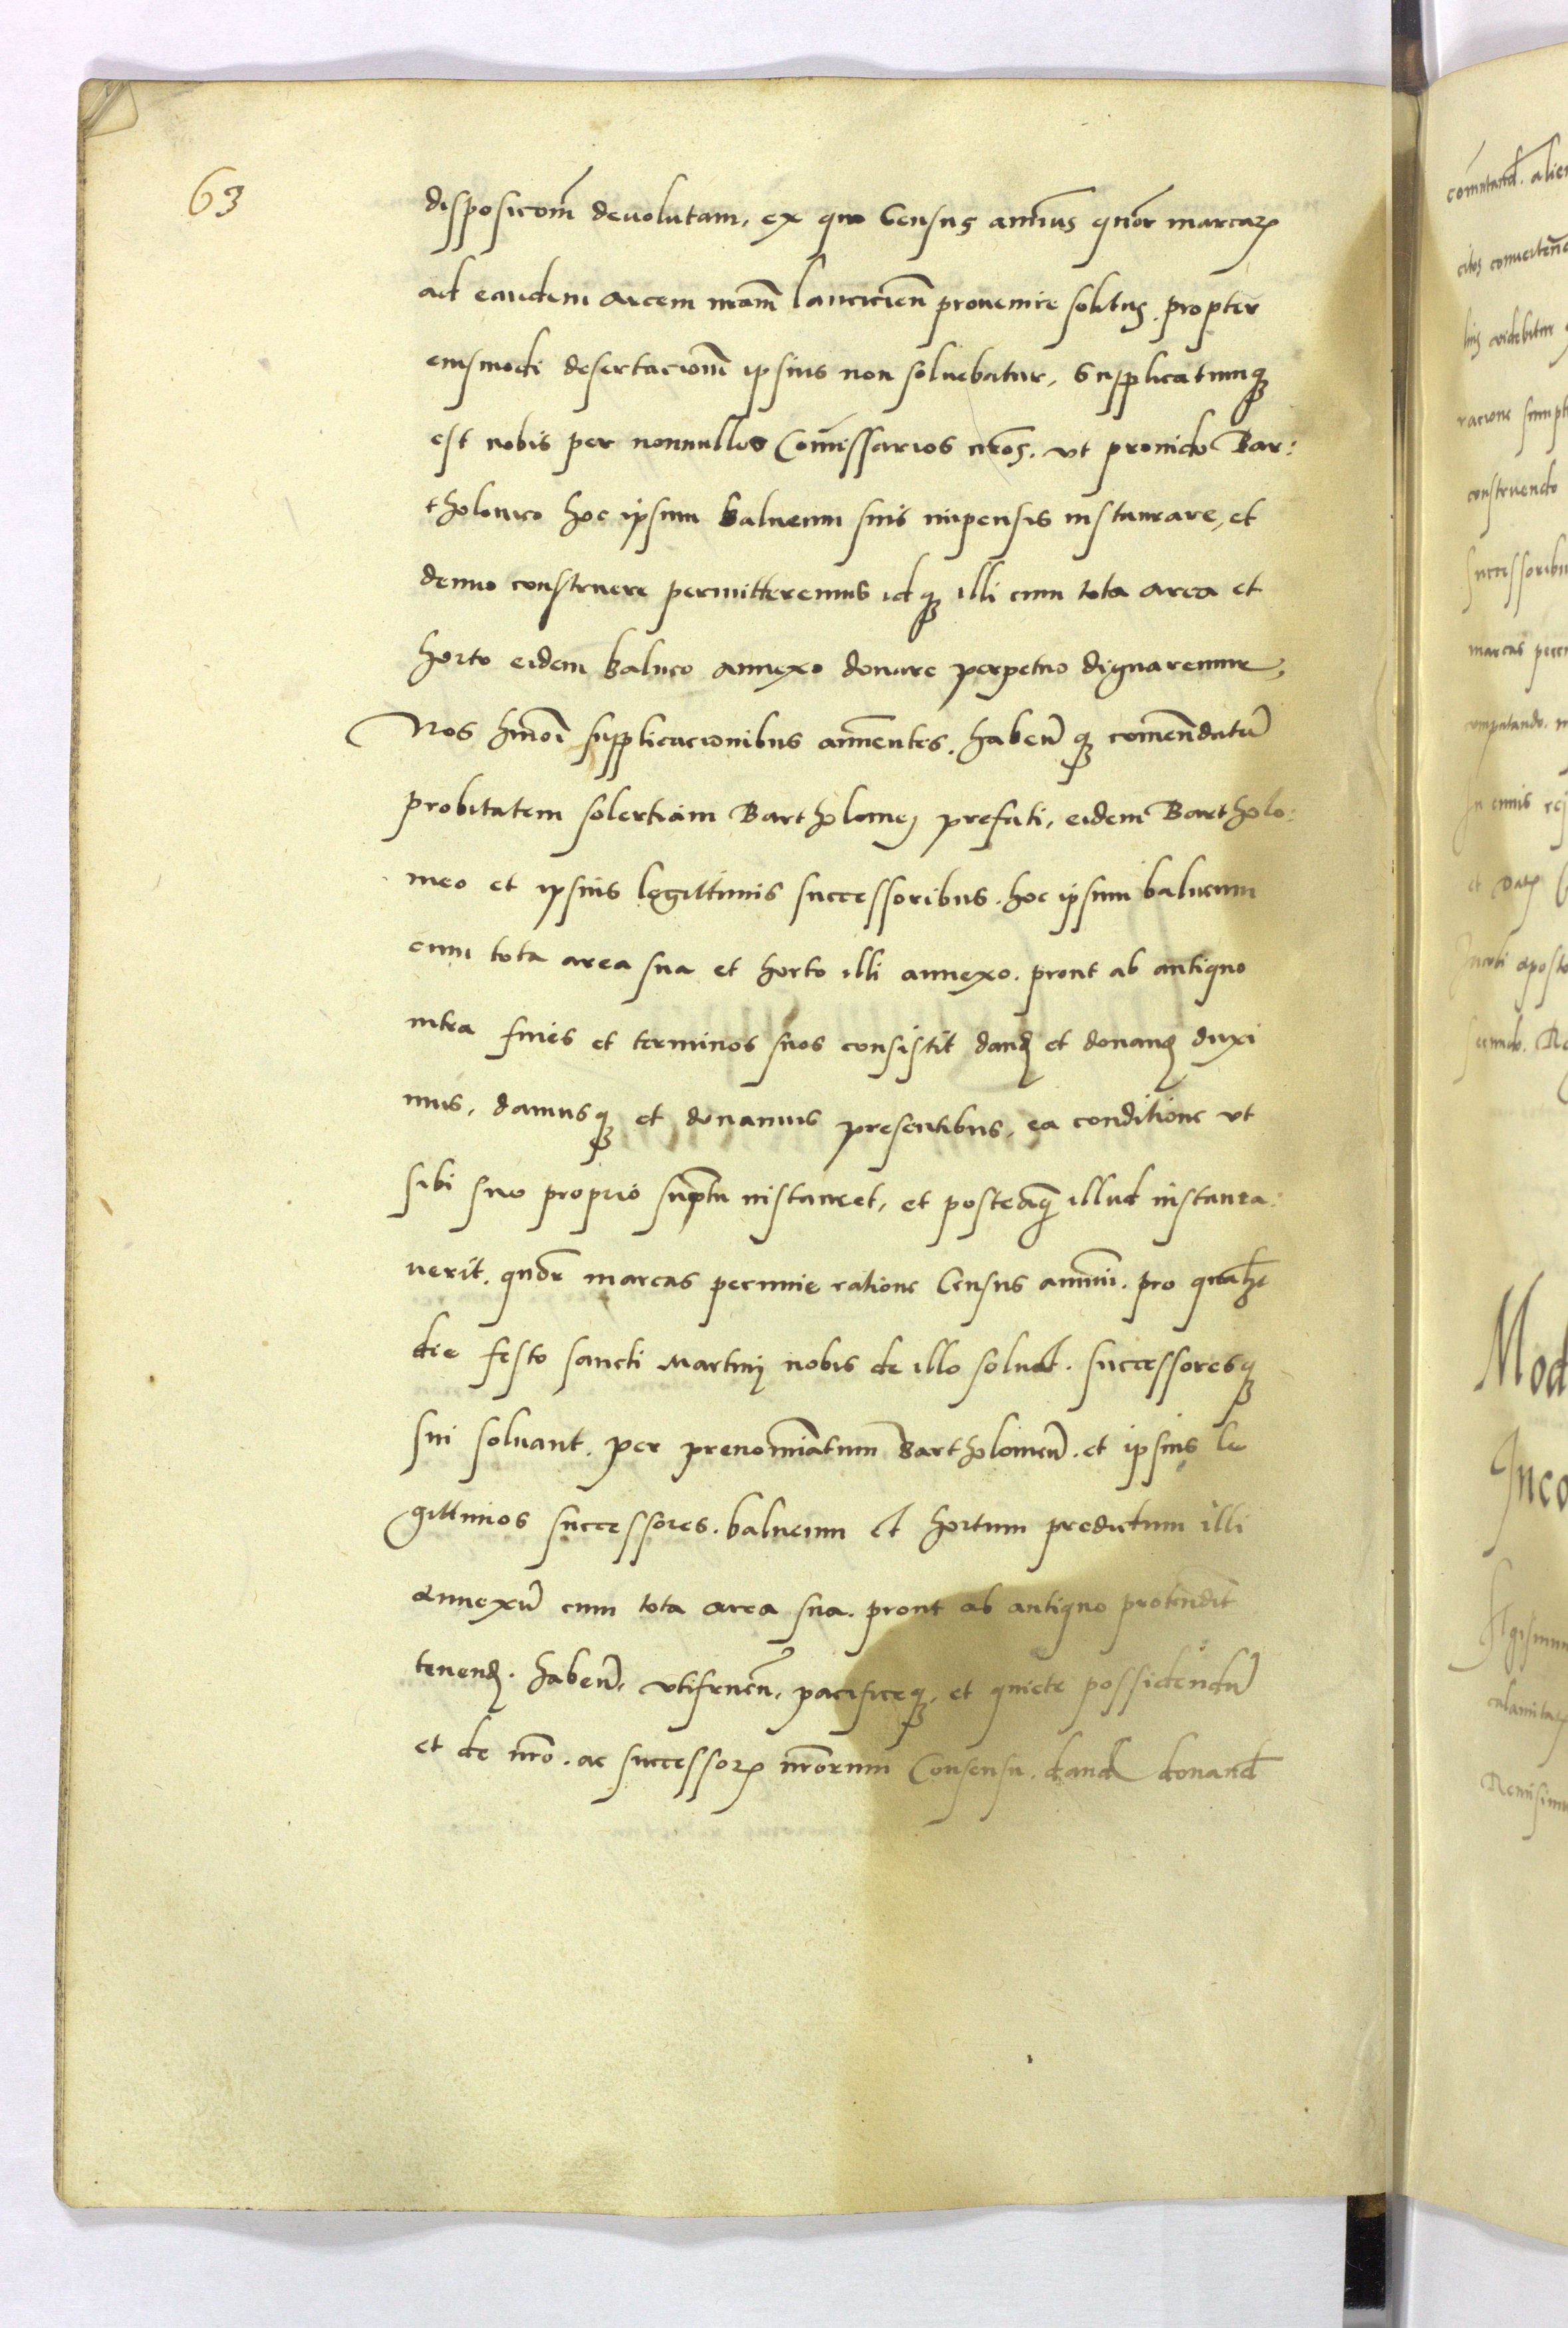 63
disposicom̃ deuolutam, ex quo Census annuus quor marcaꝝ
ad eandem arcem nram̃ lanciciens̃ prouenire solitus, propter
eiusmodi desertacionẽ ipsius non soluebatur, Supplicatumqꝫ
est nobis per nonnullos Com̃issarios nros̃, vt prouido Bar:
tholomeo hoc ipsum balneum suis impensis instaurare, et
denuo construere permitteremus idqꝫ illi cum tota area et
horto eidem balneo annexo donare perpetuo dignaremur,
Nos hmoĩ supplicacionibus annuentes, habeñqꝫ comẽndatã
probitatem solertiam Bartholomej prefati, eidem Bartholo:
meo et ipsius legittimis successoribus, hoc ipsum balneum
cum tota area sua et horto illi annexo, prout ab antiquo
intra fines et terminos suos consistit dand̃ et donand̃ duxi
mus, damusqꝫ et donamus presentibus, ea conditione vt
sibi suo proprio suptu instauret, et posteaqꝫ illud instaura:
uerit, quor̃ marcas pecunie ratione Census annui, pro qualꝫ
die festo sancti Martinj nobis de illo soluat, successoresqꝫ
sui soluant, per prenomĩatum Bartholomeũ, et ipsius le
gittimos successores, balneum et hortum predictum illi
annexũ cum tota area sua, prout ab antiquo protendit
tenend̃, habeñ, vtifrueñ, pacificeqꝫ, et quiete possidendũ
et de nrõ, ac successoꝝ nrõrum Consensu, dand̃ donand̃
com̃utand̃, alie
racione sumpt
construendo
successoribu
marcas pecu
computando,
et Datꝝ
Jacobi aposto
Mod
Inco
Remisimu